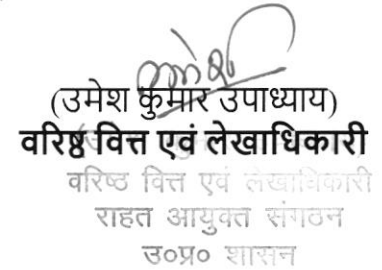 (उमेश कुमार उपाध्याय)
वरिष्ठ वित्त एवं लेखाधिकारी
वरिष्ठ वित्त एवं लेखाधिकारी
राहत आयुक्त संगठन
उ०प्र० शासन